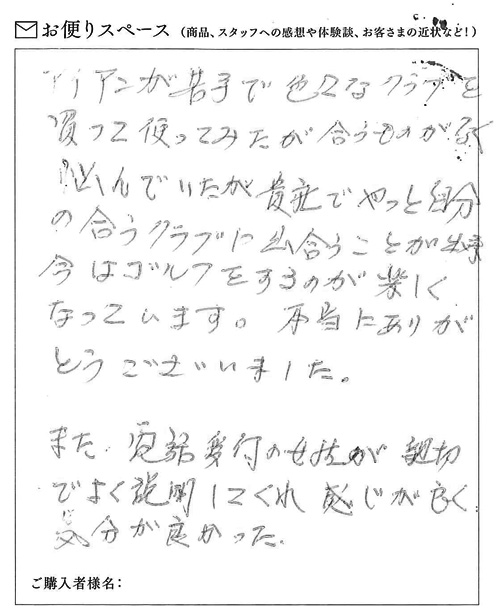 お便りスペース（商品、スタッフへの感想や体験談、お客さまの近況など！）
アイアンが苦手で色々なクラブを
買って使ってみたが合うものが無く
悩んでいたが貴社でやっと自分
の合うクラブに出合うことが出来
今はゴルフをするのが楽しく
なっています。本当にありが
とうございました。
また、電話受付の女性が親切
でよく説明してくれ感じが良く
気分が良かった。
ご購入者様名：